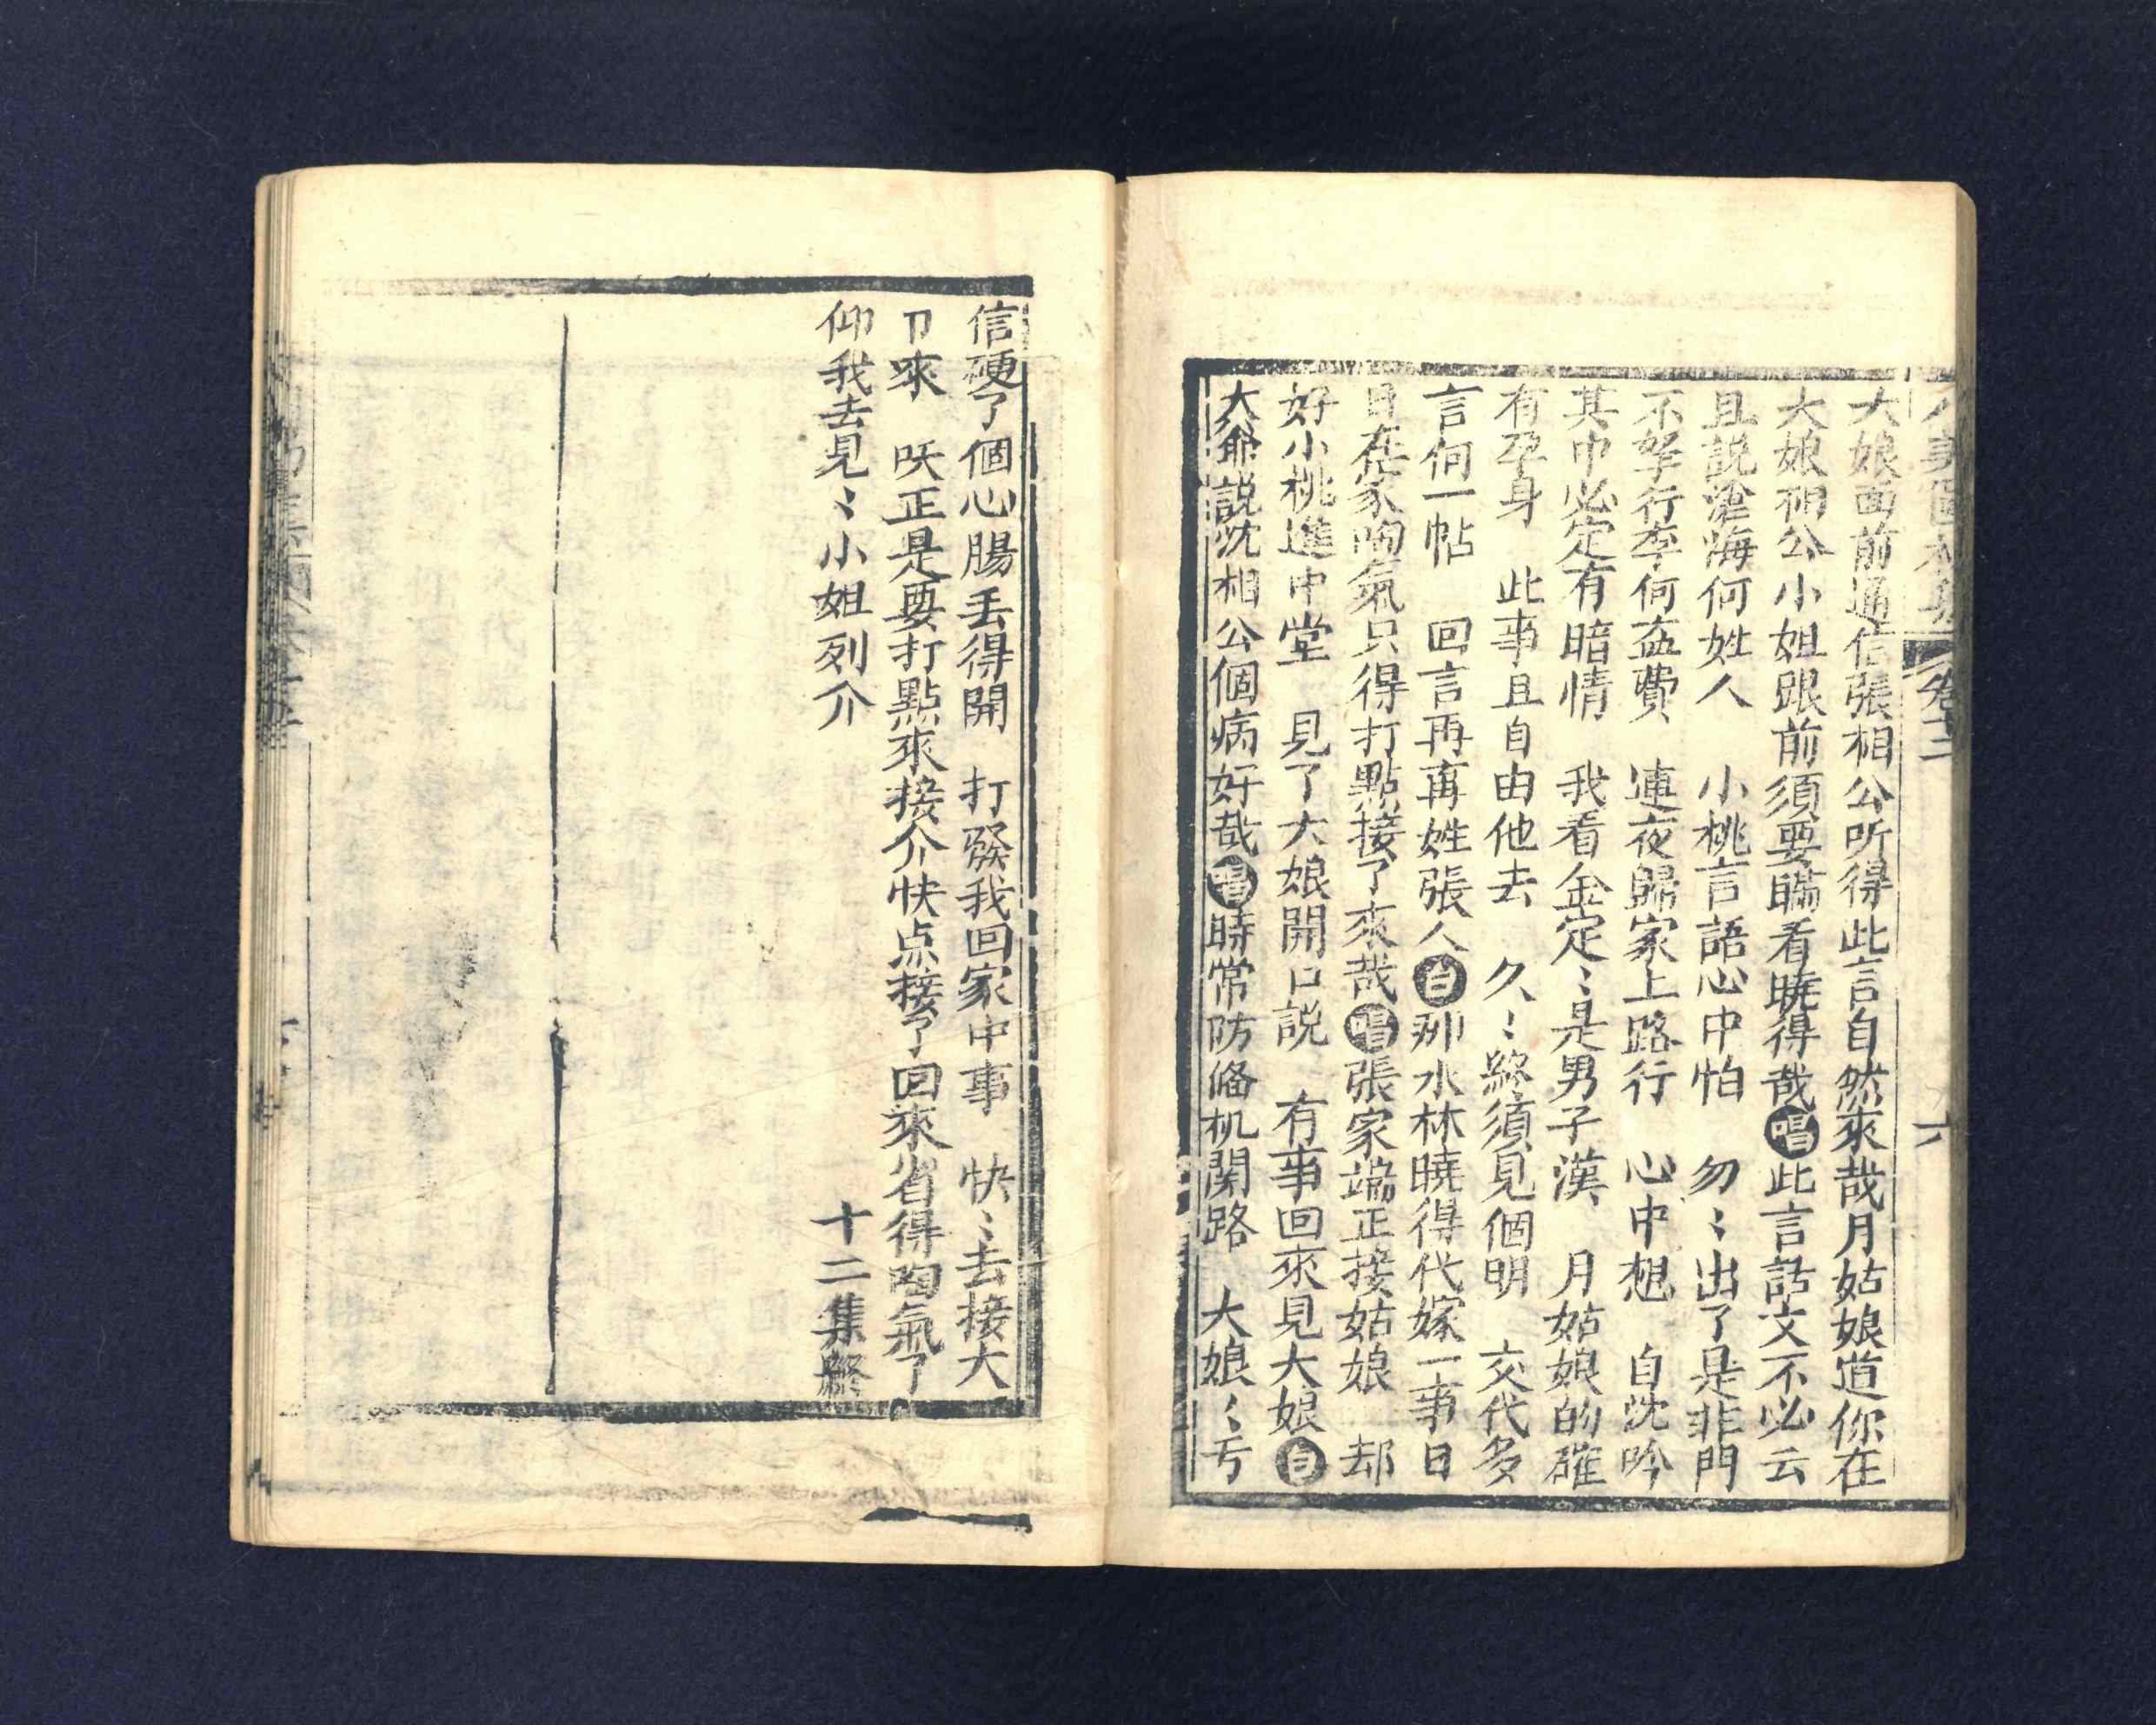 卷十二
六
大娘面前通信張相公听得此言自然來哉月姑娘道你在
大娘相公小姐跟前須要瞞看曉得哉唱此言話文不必云
且說滄海何姓人 小桃言語心中怕 勿〻出了是非門
不好行李何盃費 連夜歸家上路行 心中想 自沈吟
其中必定有暗情 我看金定〻是男子漢 月姑娘的確
有孕身 此事且自由他去 久〻終須見個明 交代多
言何一帖 回言再再姓張人白那水林曉得代嫁一事日
日在家陶氣只得打點接了來哉唱張家端正接姑娘 却
好小桃進中堂 見了大娘開口說 有事回來見大娘白
大爺說沈相公個病好哉唱時常防俻机関路 大娘〻亏
信硬了個心腸丢得開 打發我回家中事 快〻去接大
卩來 呋正是要打點來接介快点接了回來省得陶氣了
仰我去見〻小姐列介
十二集終